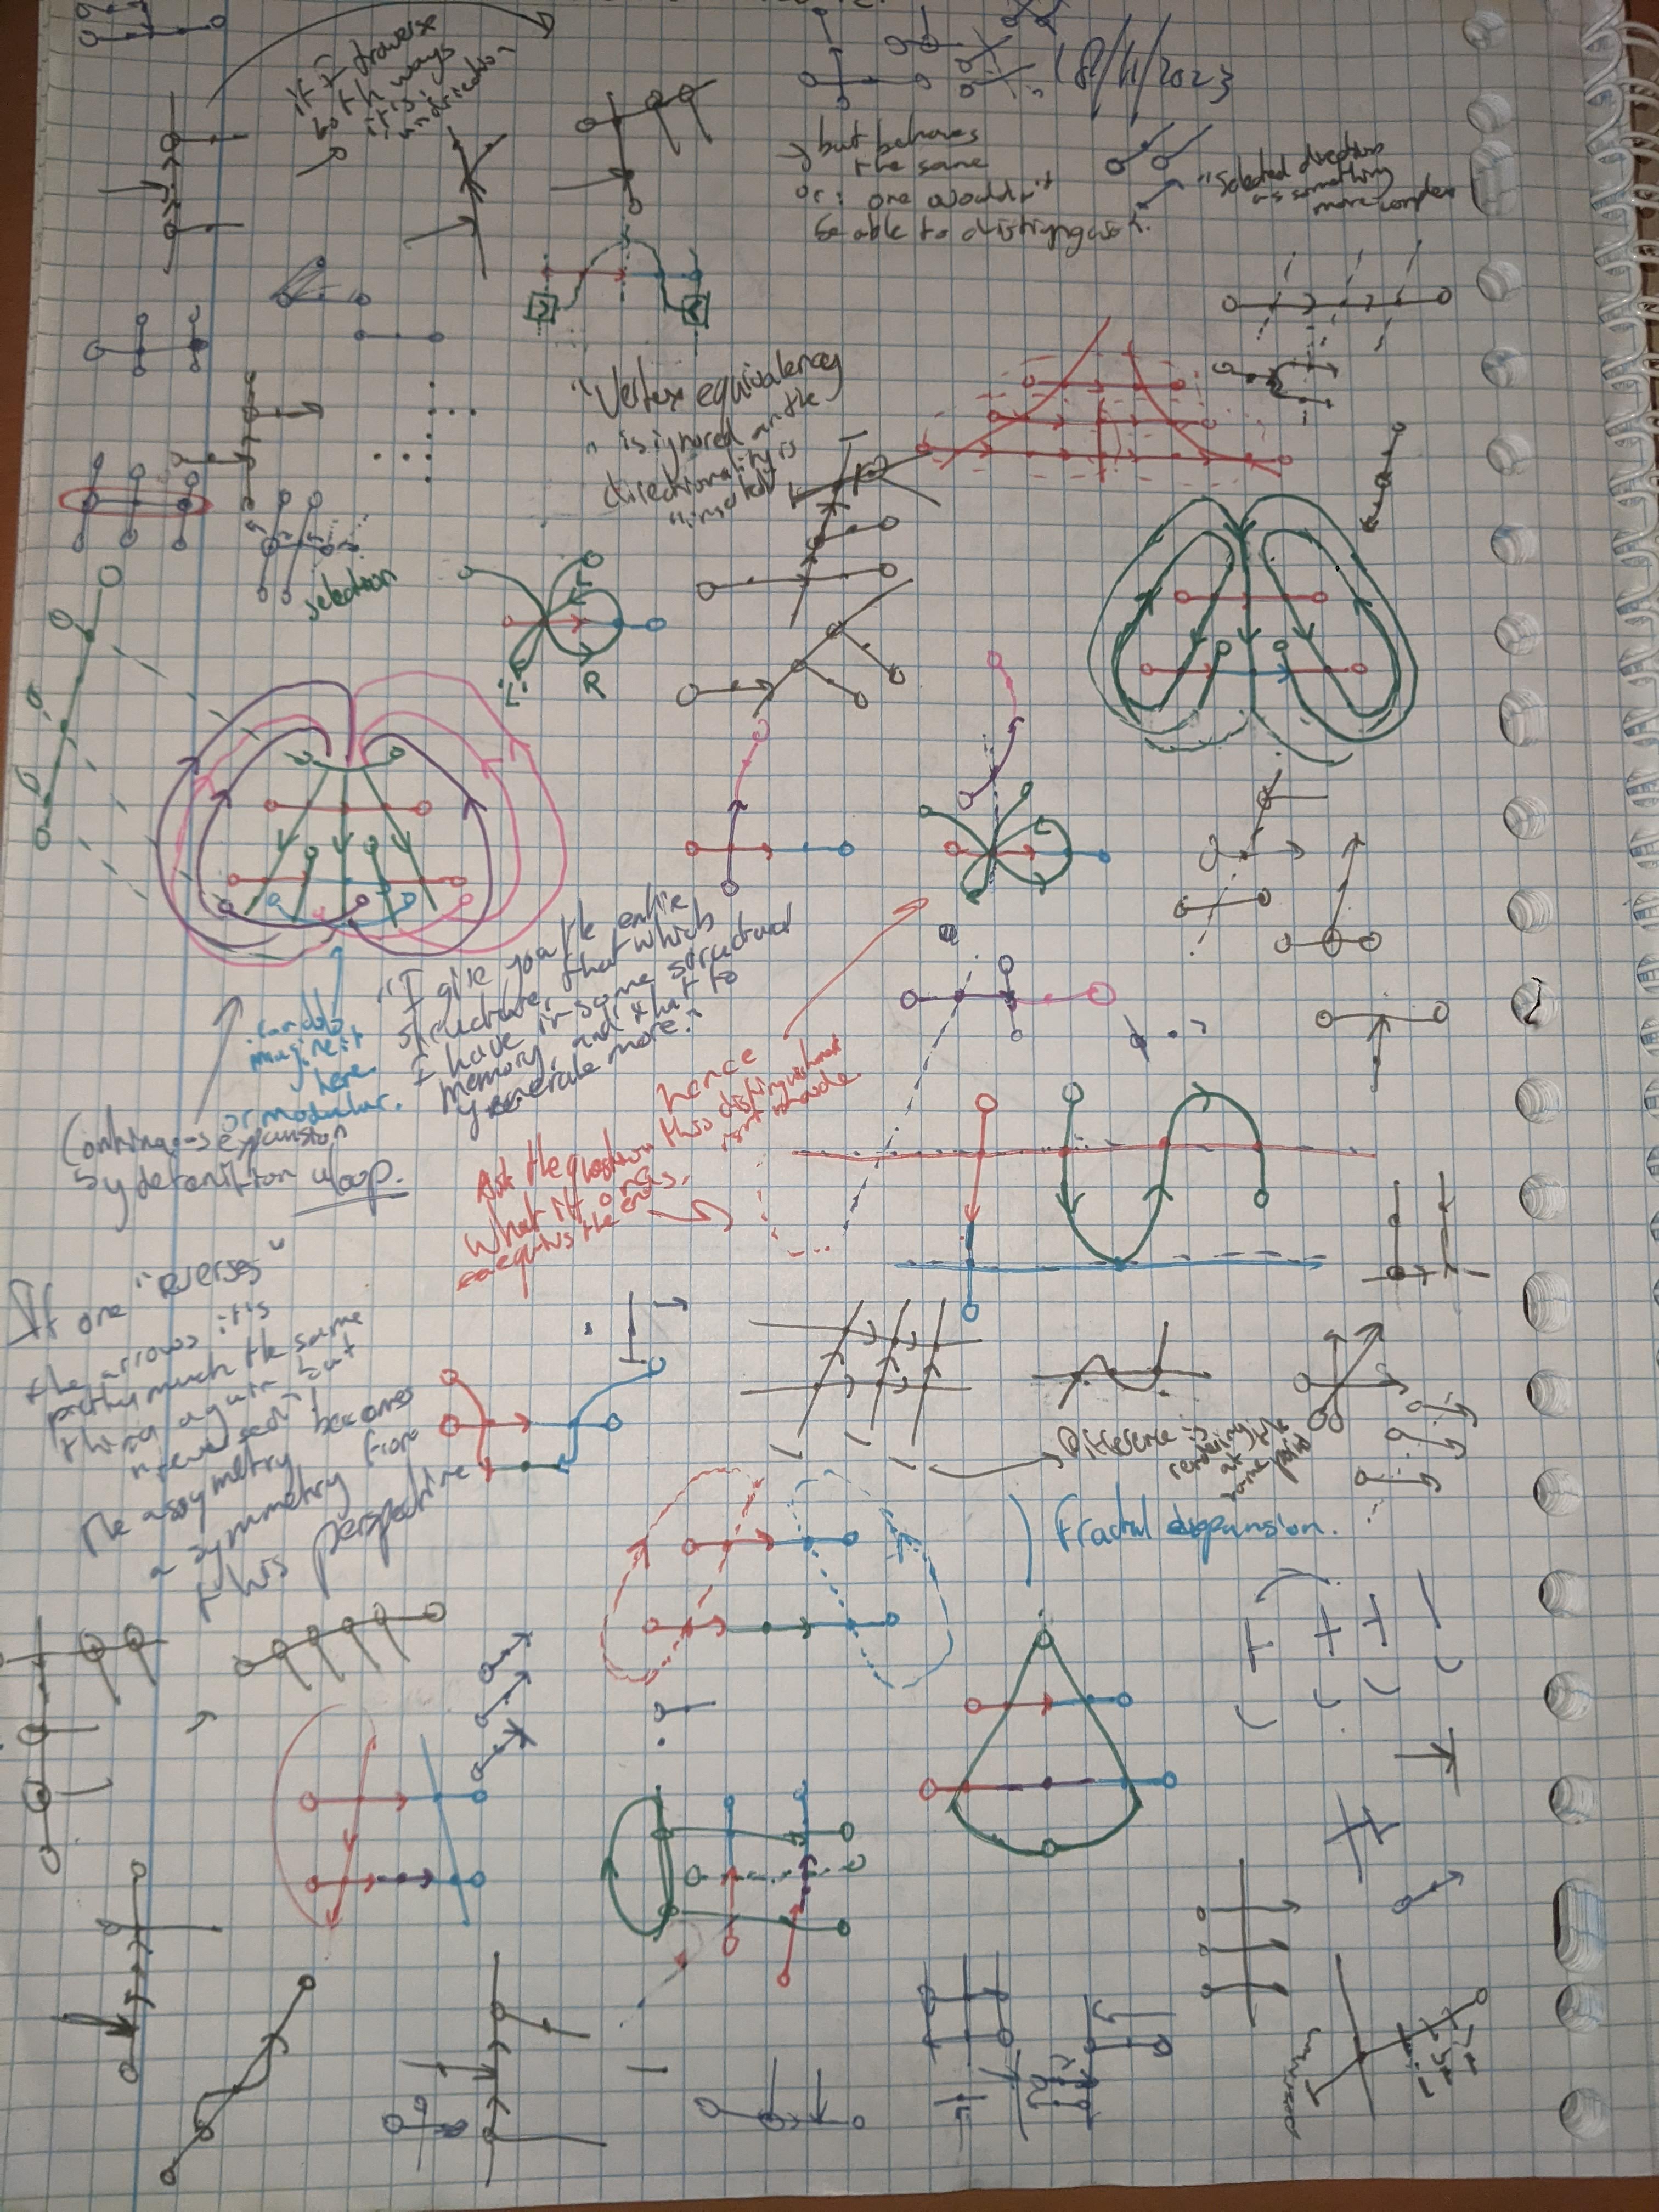 18/11/2023
if I traverse
both ways
it is
undirection
but behaves
the same
or: one wouldn't
be able to distinguish.
"Selected directions
as something
more complex
"Vertex equivalency
is ignored and the
directionality is
selection
L
R
"I give you the entire
structure, that which
I have in some structural
memory, and that to
generate more."
can do
imagine it
here
or modular.
Continuous expansion
by definition a loop.
hence
this distinguishment
isn't made
Ask the question
What if one
equates the ends.
If one "reverses"
the arrows it's
pretty much the same
thing again but
"reversed".
The assymetry becomes
a symmetry from
this perspective
Difference is
rendering
at
some point
Fractal expansion.